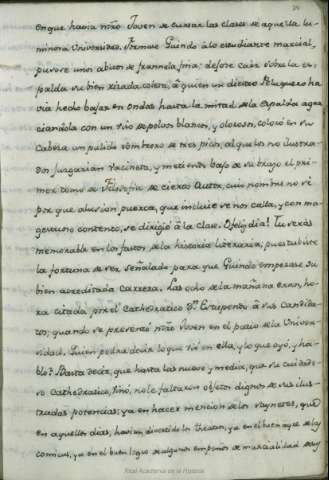 en que havia nro Joven de cursar las clases de aquella lu-
minosa Universidad. Firmose Guindo à lo estudiante marcial,
pusose unos abitos de franela fina; dejose caer sobre la es-
palda su bien rizada coleta, à quien un diestro Peluquero ha-
via hecho bajar en ondas hasta la mitad de la espalda agra
ciandola con un rio de polvos blancos, y olorosos, colocó en su
cabeza un pulido sombrero de tres picos, al que los no ilustra-
dos juzgarian vacineta, y metiendo bajo de su brazo el pri-
mer tomo de Filosofia de cierto Autor, cuio nombre no
por que alusion puerca, que incluie se nos calla, y con ma-
gestuoso contento, se dirigió à la clase. O feliz dia! Tu serás
memorable en los fastos de la historia literaria, pues tubiste
la fortuna de ser señalado para que Guindo empezase su
bien acreditada carrera. Las ocho de la mañana eran, ho-
ra citada por el Cathedratico Dn. Estupendo à sus Candida-
tos, quando se presentó nro Joven en el patio de la Univer-
sidad. Quien podra decir lo que vió en ella, y lo que oyó, y ha-
bló? Basta decir, que hasta las nueve y media, que su cuidado-
so Cathedratico, vino, no le faltaron objetos dignos de sus ilus-
tradas potencias; ya en hacer mencion de los saynetes, que
en aquellos dias, havian divertido los Theatros, ya en el buen ayre de las
comicas, ya en el buen logro de algunos empeños de marcialidad
Real Academia de la Historia